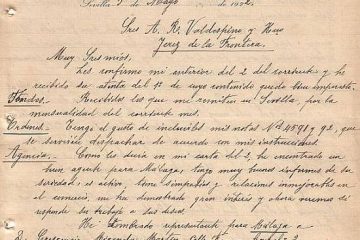 Sevilla 5 Mayo 1892
Sres A. R. Valdespino y Hno
Jerez de la Frontera
Muy Sres mios,
Les confirmo mi anterior del 2 del corriente y he
recibido su atenta del 1º de cuyo contenido quedo bien impuesto.
Fondos. Recibidos los que me remiten en Sevilla, por la
mensualidad del corriente mes.
Ordenes. Tengo el gusto de incluirles mis notas Nos 4591 y 92, que
se servirán despachar de acuerdo con mis instrucciones.
Agencia. Como les decia en mi carta del 2, he encontrado un
buen agente para Malaga, tengo muy buenos informes de su
seriedad, es activo, tiene simpatías y relaciones inmejorables en
el comercio, me ha demostrado gran interés y ahora veremos si
responde su trabajo a sus deseos.
He nombrado representante para Malaga a
D. Gregorio